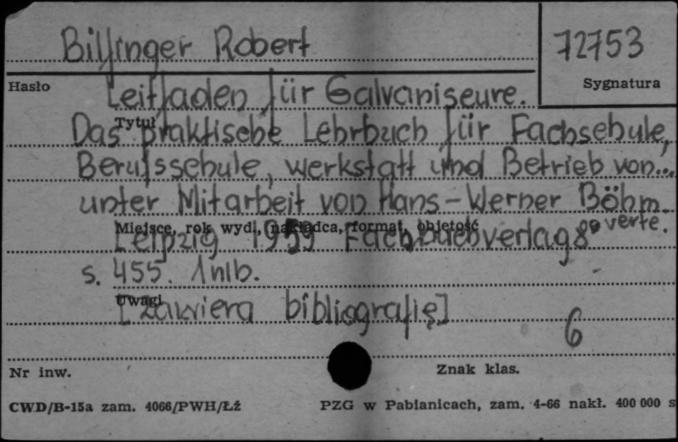 Billinger Robert
72753
Hasło
Sygnatura
Leitfaden für Galvaniseure.
Tytuł
Das praktische Lehrbuch für Fachschule,
Berufsschule, Werkstatt und Betrieb von...
unter Mitarbeit von Hans-Werner Böhm.
Miejsce, rok wyd., nakładca, format, objętość
Leipzig 1959 Fachbuchverlag 8°
s. 455. 1nlb.
Uwagi
[zawiera bibliografię]
6
Nr inw.
Znak klas.
CWD/B-15a zam. 4066/PWH/Łź
PZG w Pabianicach, zam. 4-66 nakł. 400 000 s